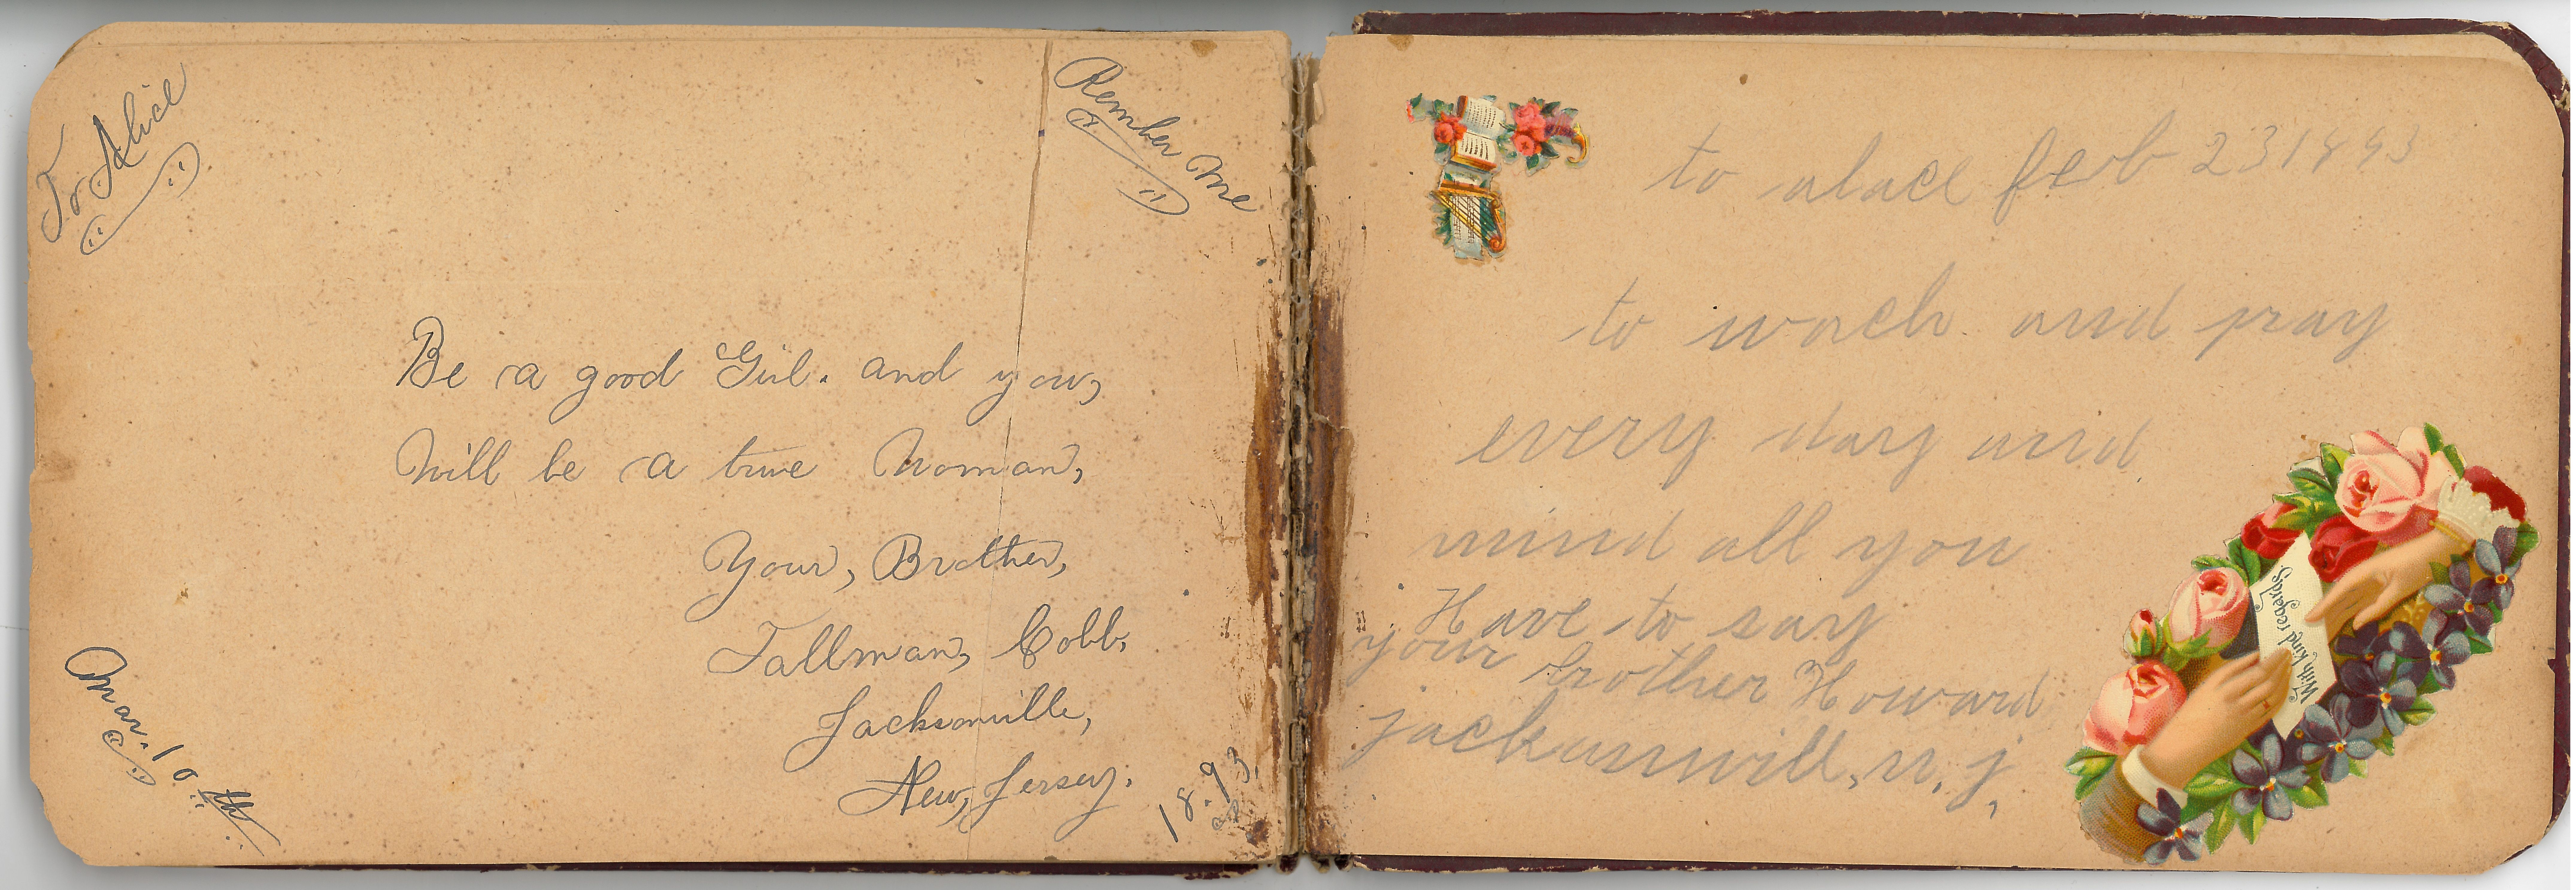 To Alice
Rember Me
Be a good Girl. and you,
Will be a true Woman,
Your, Brother,
Tallman, Cobb,
Jacksonville,
New, Jersey.
Mar. 10th.
18.93.
to alace feb 23 1893
to wach and pray
every day and
mind all you
Have to say
your brother Howard
jacksunwill, n, j,
With kind regards.